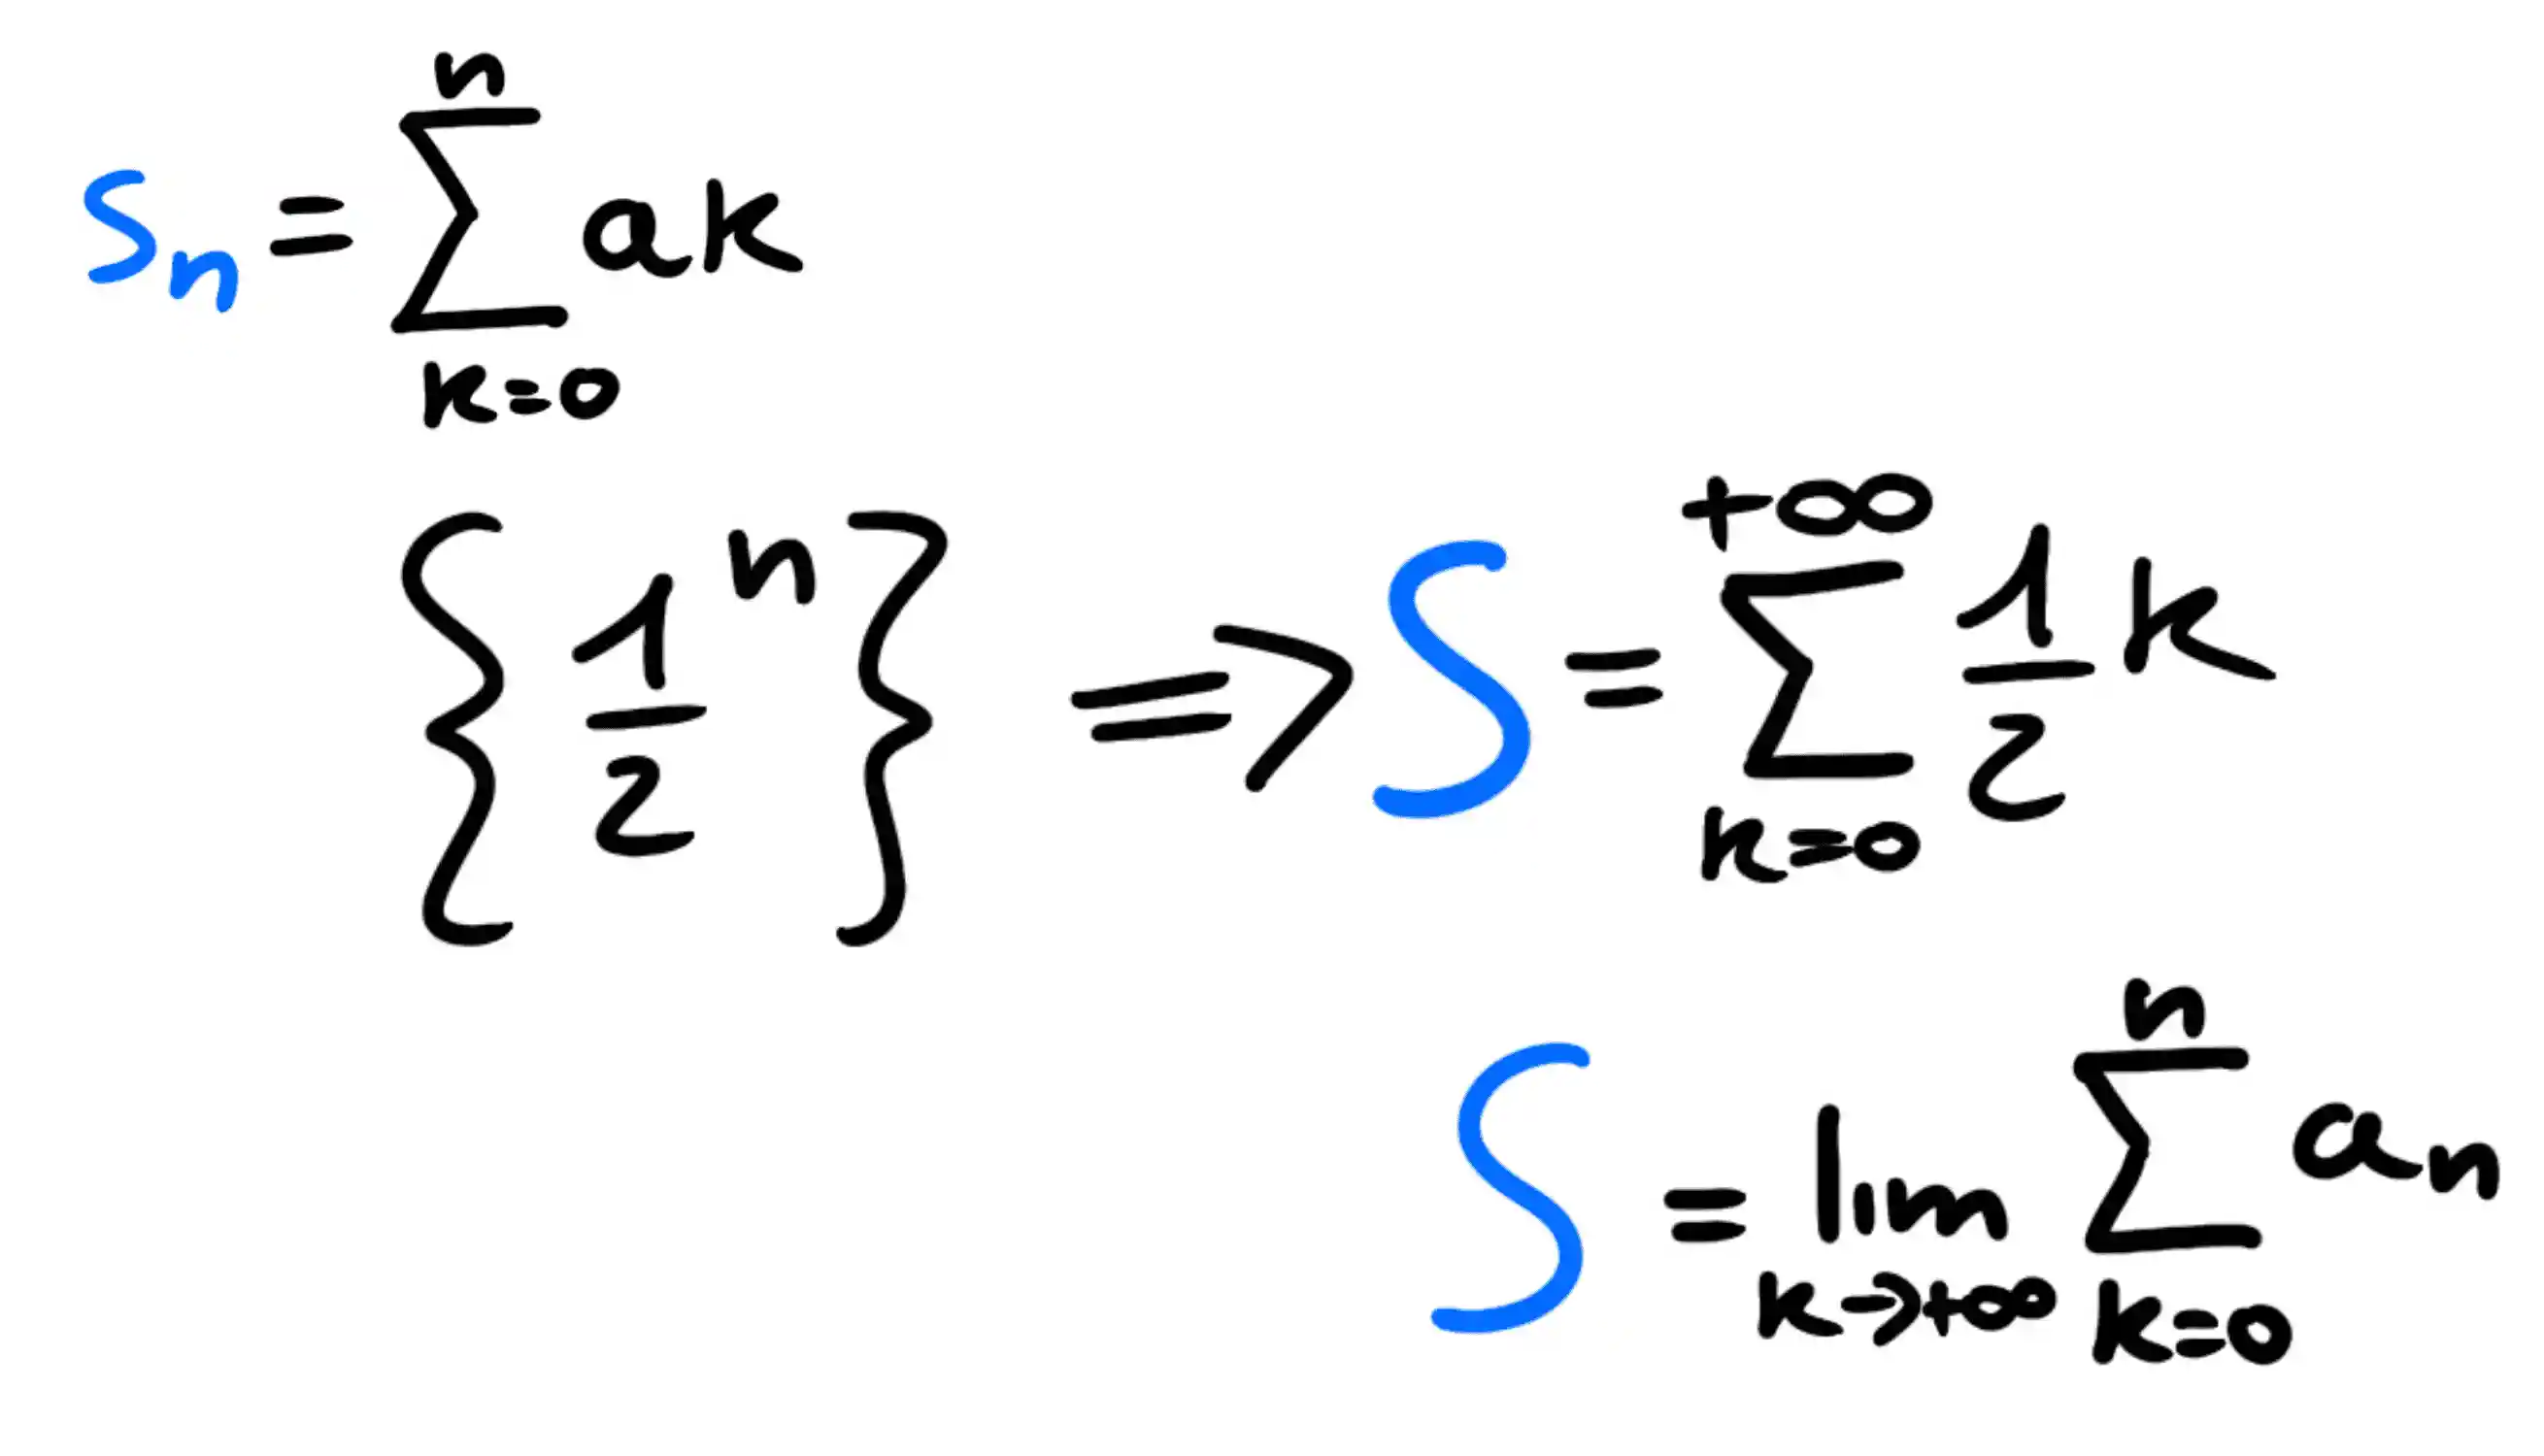 $S_n = \sum_{k=0}^{n} ak$
$\left\{ \frac{1}{2}^n \right\} \Rightarrow S = \sum_{k=0}^{+\infty} \frac{1}{2}^k$
$S = \lim_{k \to +\infty} \sum_{k=0}^{n} a_n$